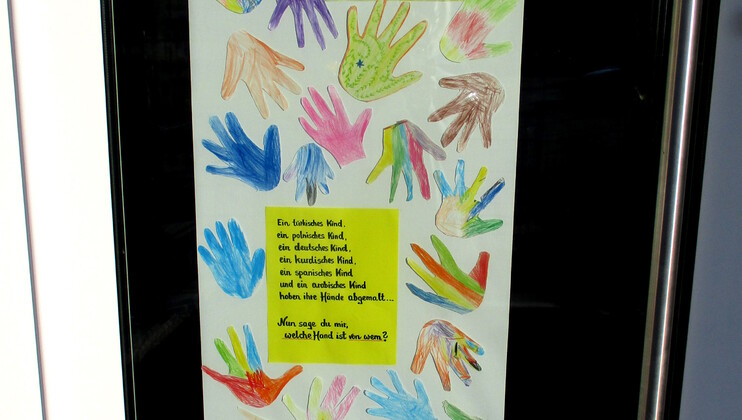 Ein türkisches Kind,
ein polnisches Kind,
ein deutsches Kind,
ein kurdisches Kind,
ein spanisches Kind
und ein arabisches Kind
haben ihre Hände abgemalt...
Nun sage du mir,
welche Hand ist von wem?